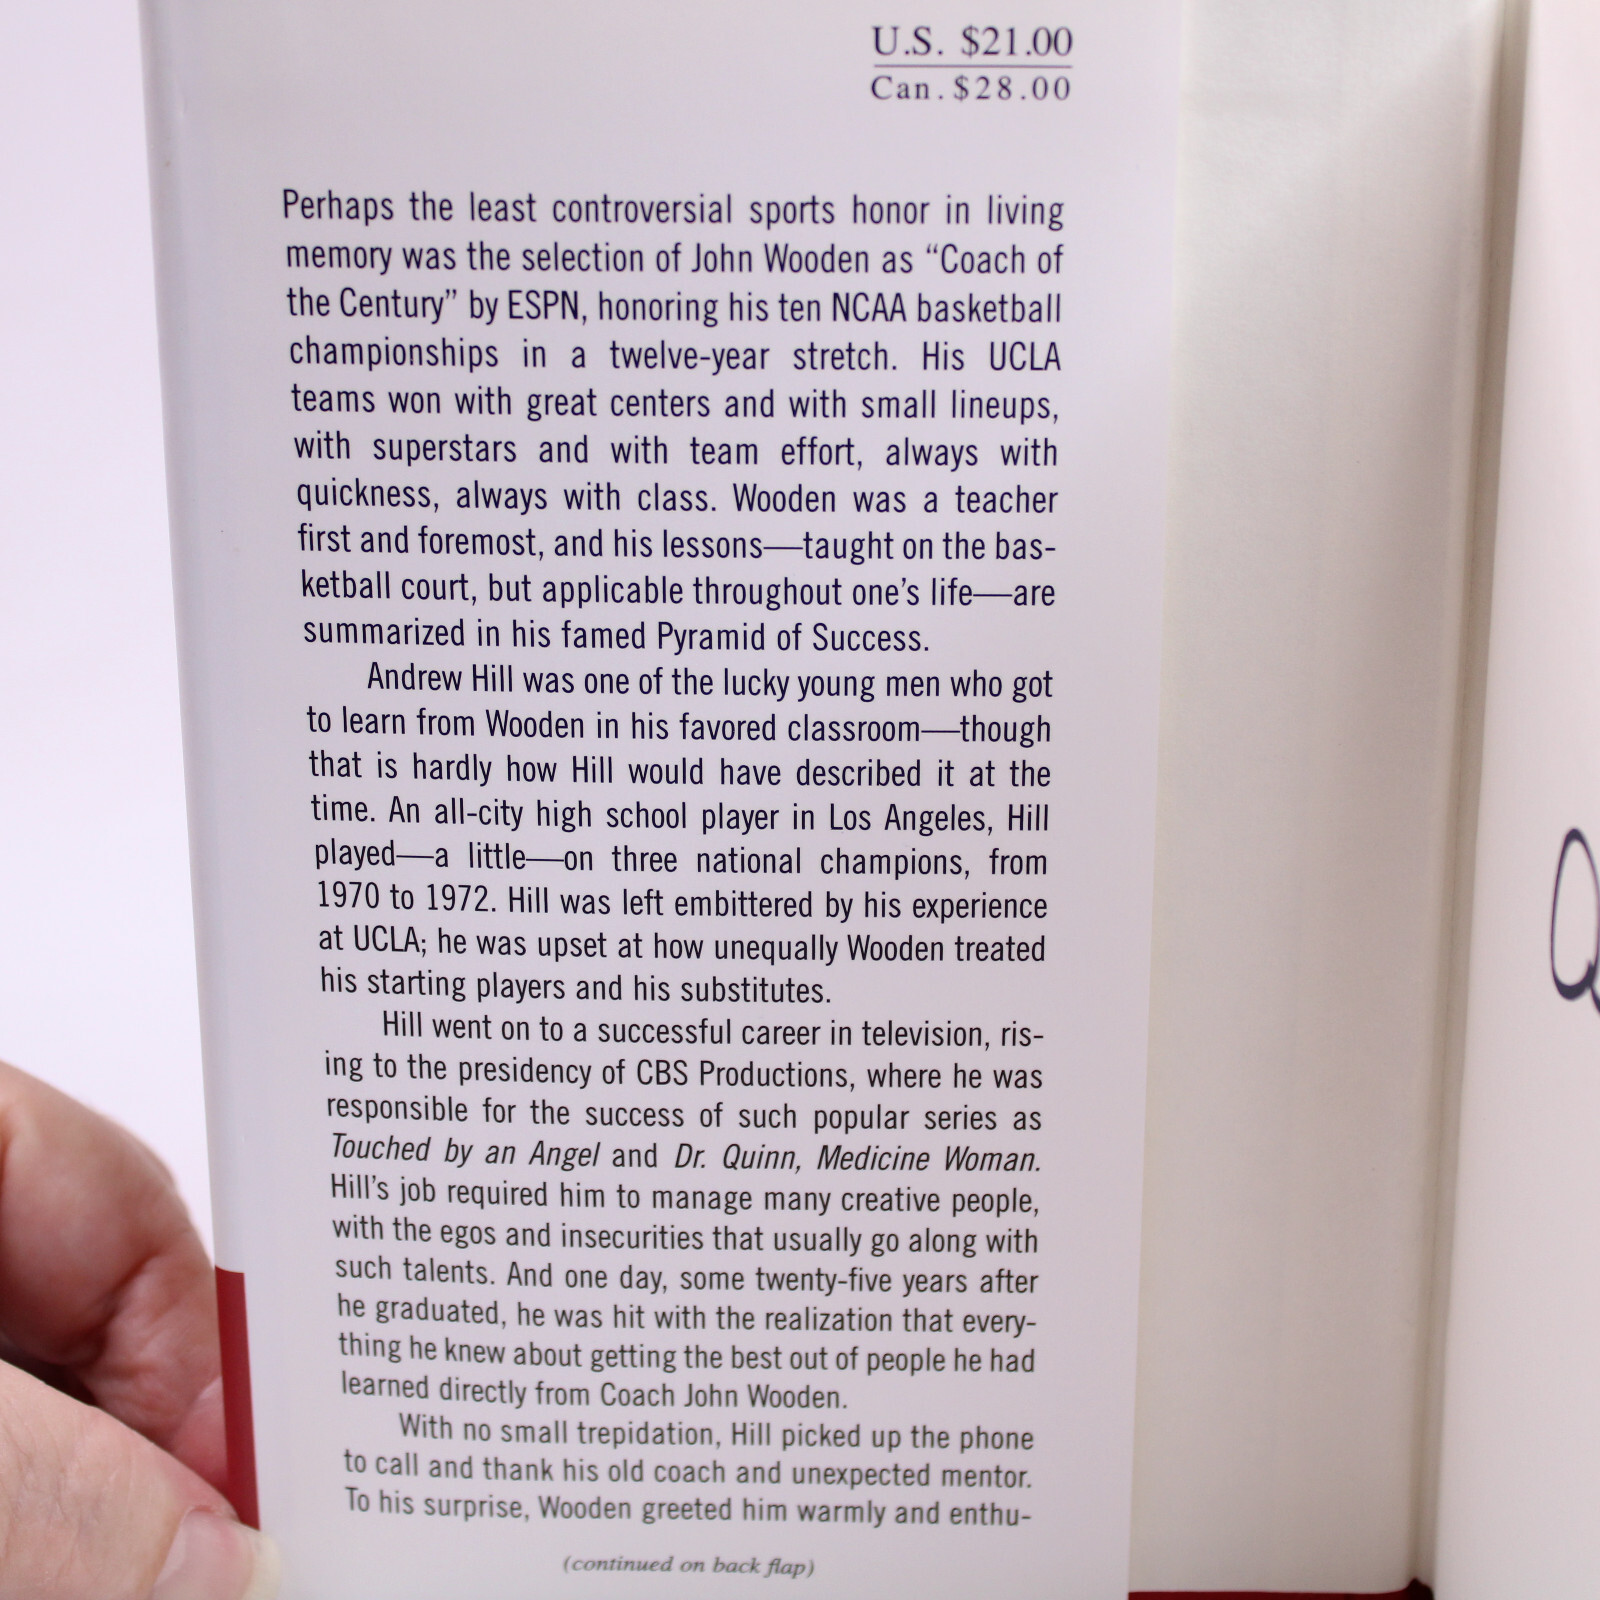 U.S. $21.00
Can. $28.00
Perhaps the least controversial sports honor in living
memory was the selection of John Wooden as “Coach of
the Century” by ESPN, honoring his ten NCAA basketball
championships in a twelve-year stretch. His UCLA
teams won with great centers and with small lineups,
with superstars and with team effort, always with
quickness, always with class. Wooden was a teacher
first and foremost, and his lessons—taught on the bas-
ketball court, but applicable throughout one’s life—are
summarized in his famed Pyramid of Success.
Andrew Hill was one of the lucky young men who got
to learn from Wooden in his favored classroom—though
that is hardly how Hill would have described it at the
time. An all-city high school player in Los Angeles, Hill
played—a little—on three national champions, from
1970 to 1972. Hill was left embittered by his experience
at UCLA; he was upset at how unequally Wooden treated
his starting players and his substitutes.
Hill went on to a successful career in television, ris-
ing to the presidency of CBS Productions, where he was
responsible for the success of such popular series as
Touched by an Angel and Dr. Quinn, Medicine Woman.
Hill’s job required him to manage many creative people,
with the egos and insecurities that usually go along with
such talents. And one day, some twenty-five years after
he graduated, he was hit with the realization that every-
thing he knew about getting the best out of people he had
learned directly from Coach John Wooden.
With no small trepidation, Hill picked up the phone
to call and thank his old coach and unexpected mentor.
To his surprise, Wooden greeted him warmly and enthu-
(continued on back flap)
Q